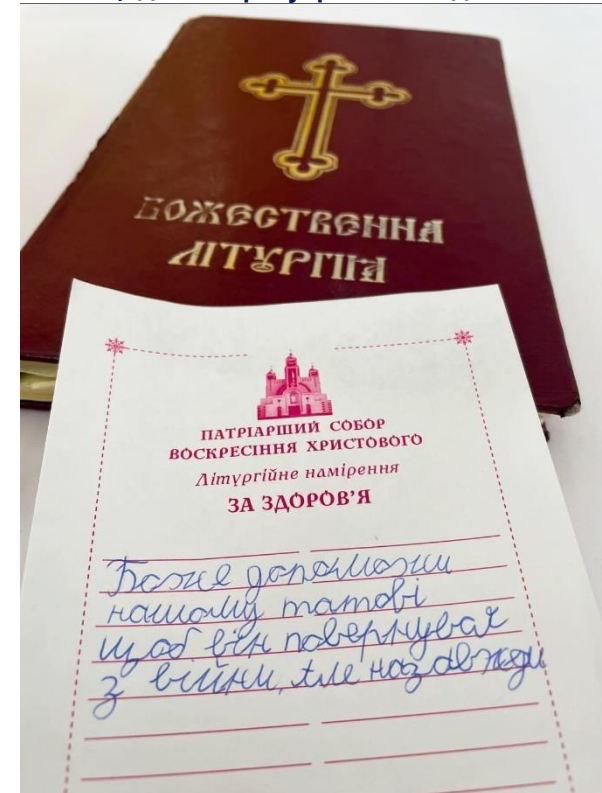 БОЖЕСТВЕННА
ЛІТУРГІЯ
ПАТРІАРШИЙ СОБОР
ВОСКРЕСІННЯ ХРИСТОВОГО
Літургійне намірення
ЗА ЗДОРОВ'Я
Боже допоможи
нашому татові
щоб він повернувся
з війни, але назавжди